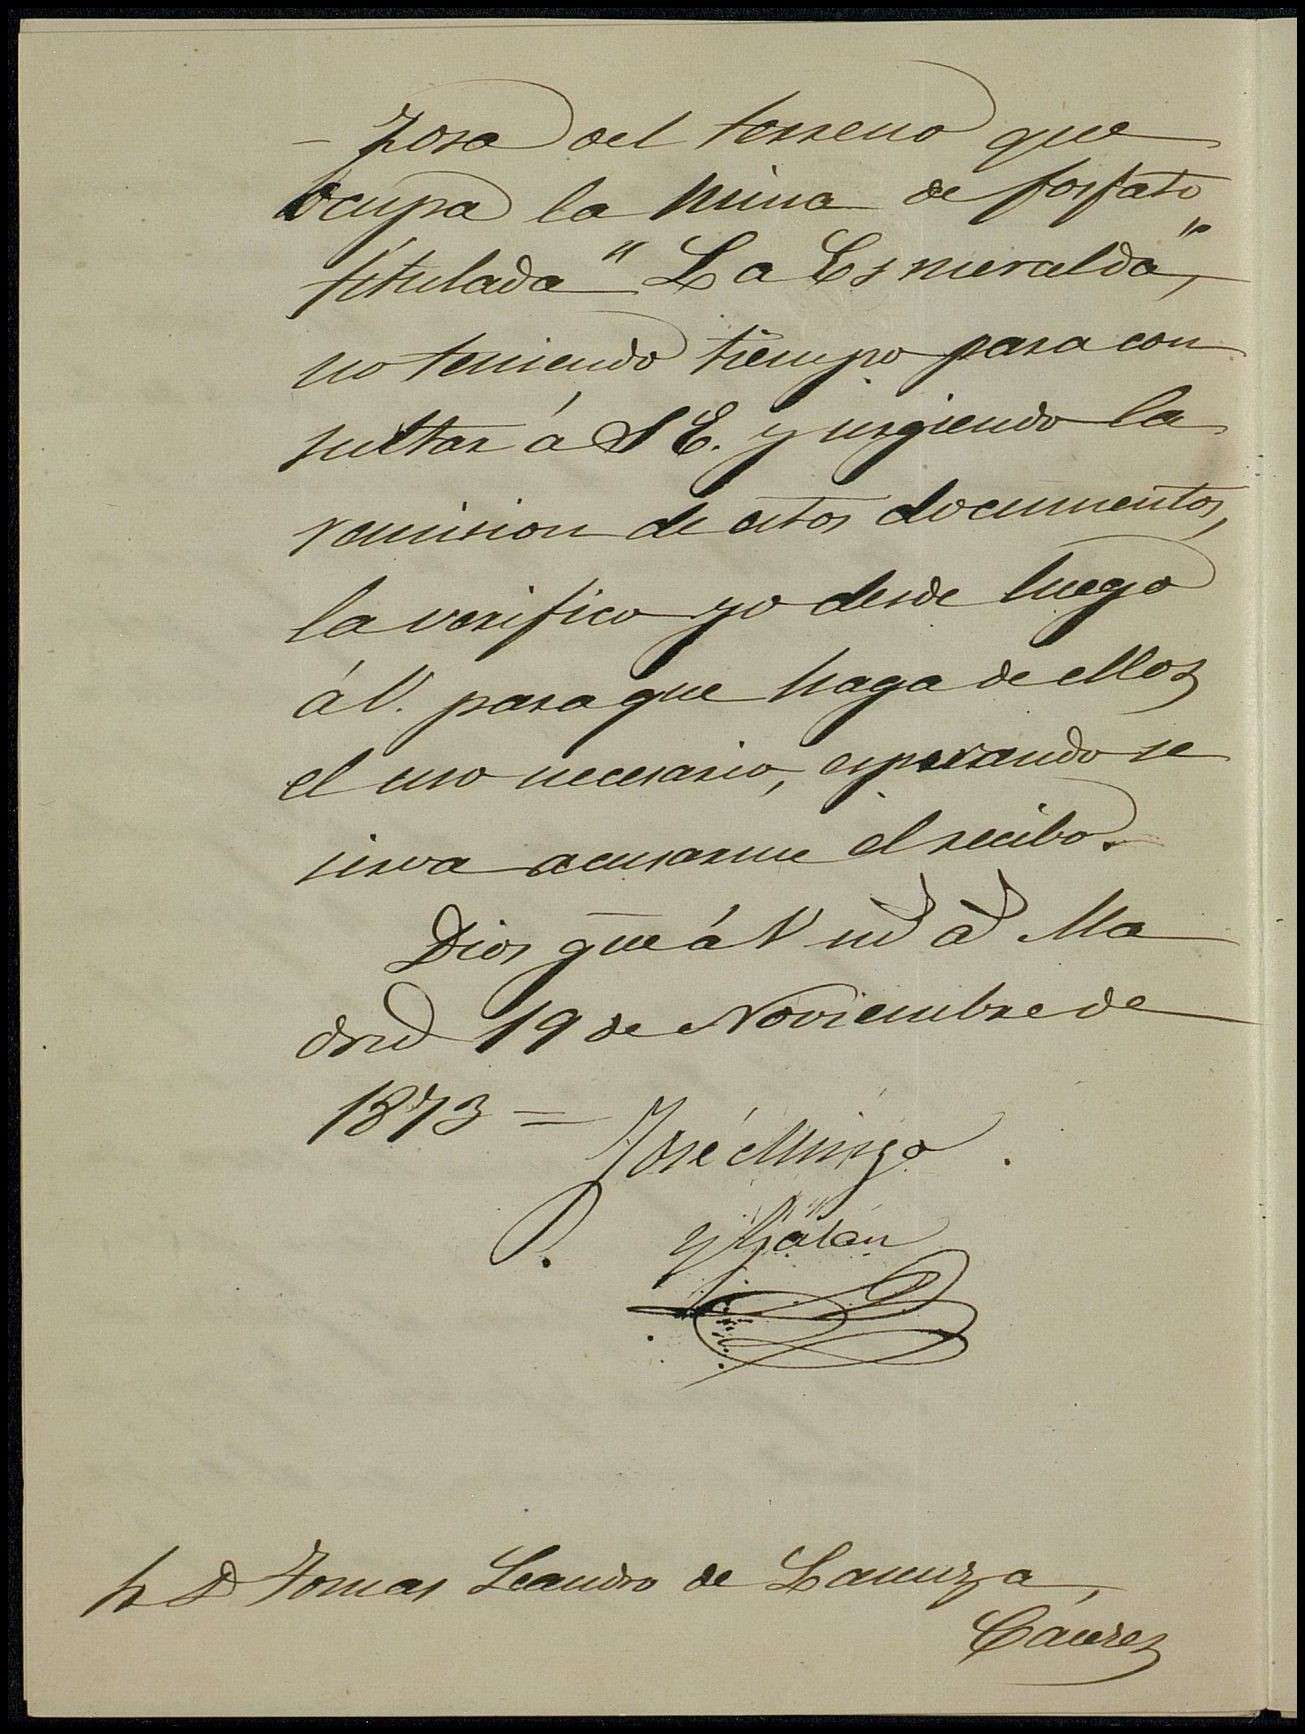 - zosa del terreno que
ocupa la mina de fosfato
titulada "La Esmeralda",
no teniendo tiempo para con
sultar á S E. y urgiendo la
remision de estos documentos,
la verifico yo desde luego
á V. para que haga de ellos
el uso necesario, esperando se
sirva acusarme el recibo.
Dios gue á V ms as Ma
drid 19 de Noviembre de
1873 =
José Mingo
y Galán
Sr D Tomas Leandro de Lacunza,
Cáceres